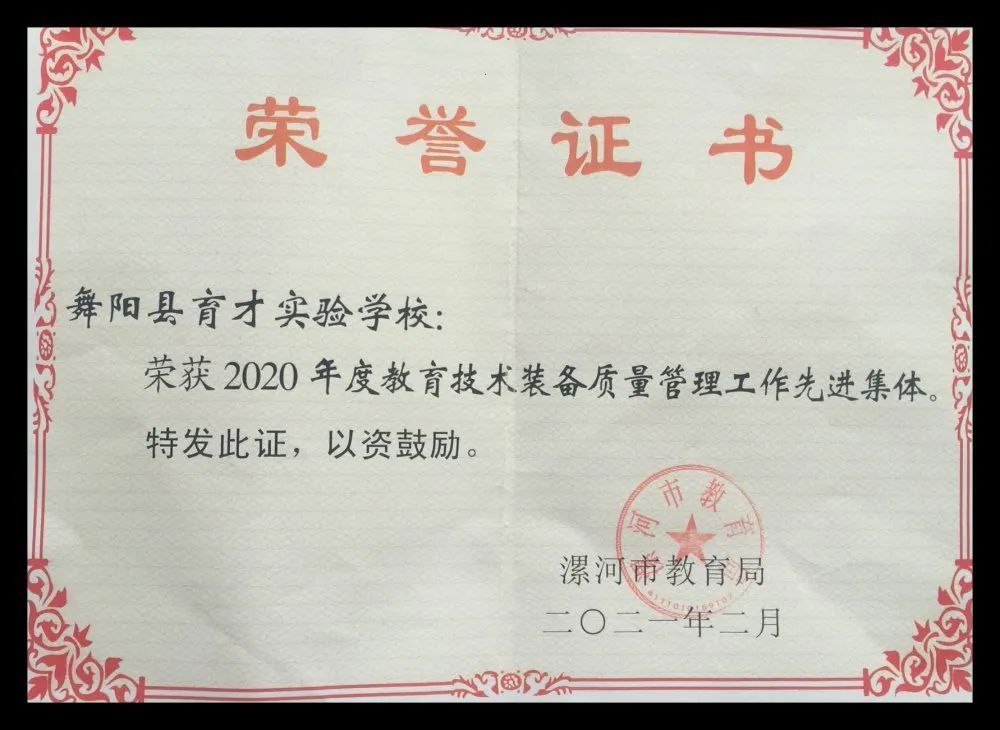 荣誉证书
舞阳县育才实验学校：
荣获2020年度教育技术装备质量管理工作先进集体。
特发此证，以资鼓励。
漯河市教育局
漯河市教育局
二〇二一年二月